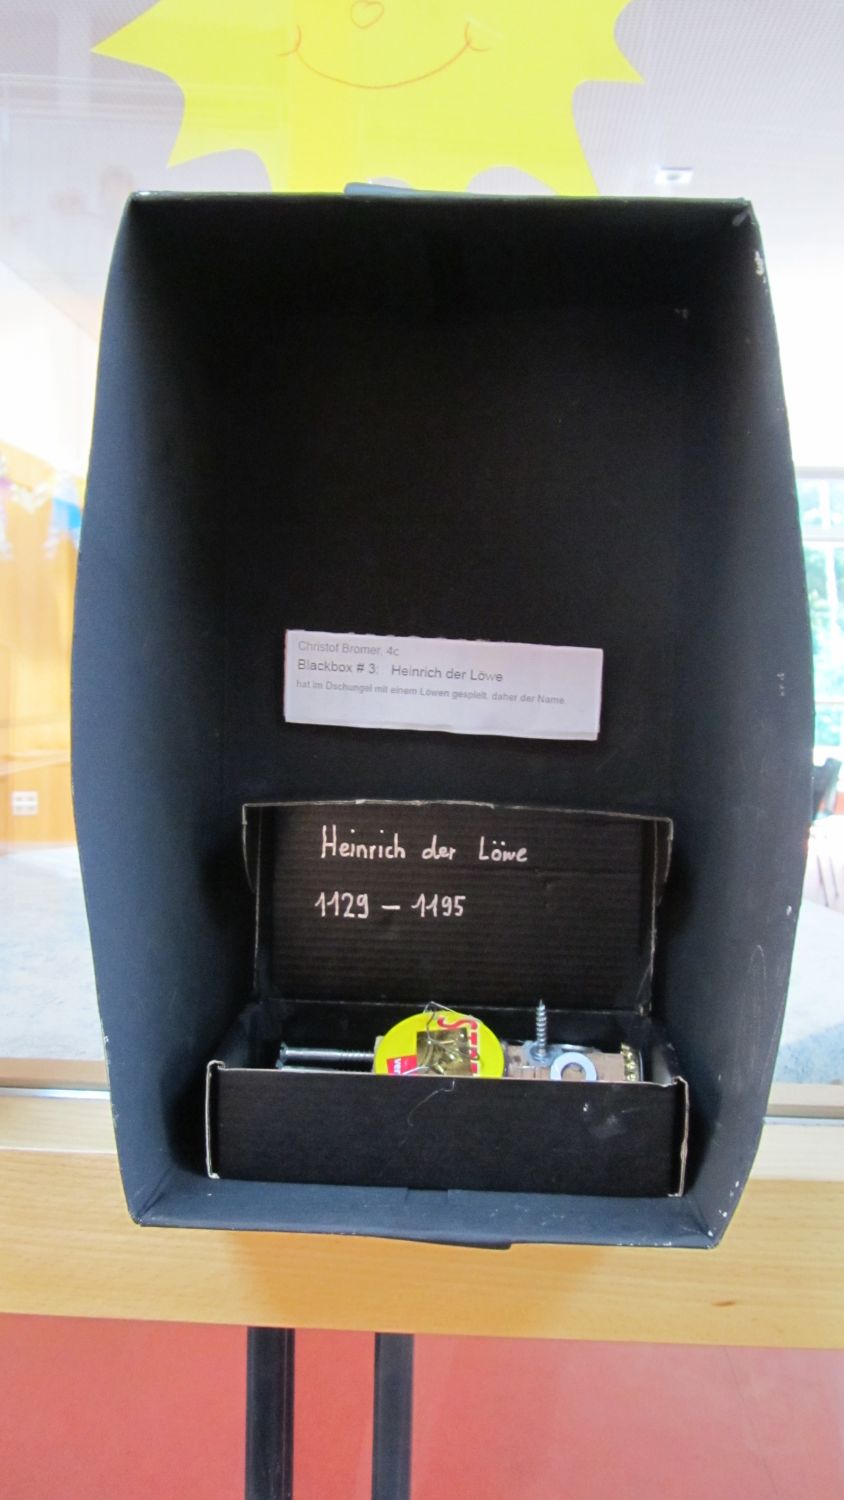 Christof Bromer, 4c
Blackbox # 3: Heinrich der Löwe
hat im Dschungel mit einem Löwen gespielt, daher der Name.
Heinrich der Löwe
1129 – 1195